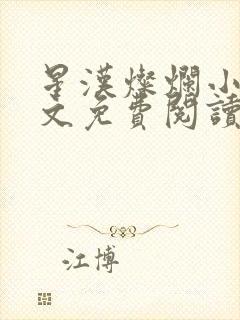 星漢燦爛小
文免費閱讀
江博